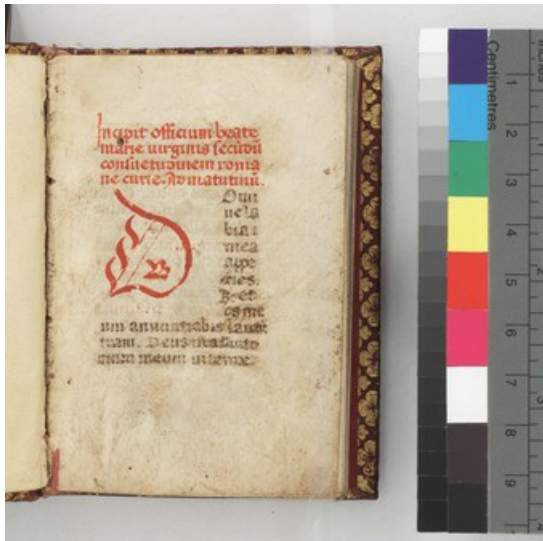 Incipit officium beate
marie uirginis secūdū
consuetudinem roma
ne curie. Ad matutinū.
D
Omi
ne la
bia
mea
appe
ries.
R. et
os me
um annuntiabit laudē
tuam. Deus in adiuto
rium meum intende.
Centimetres
1
2
3
4
5
6
7
8
9